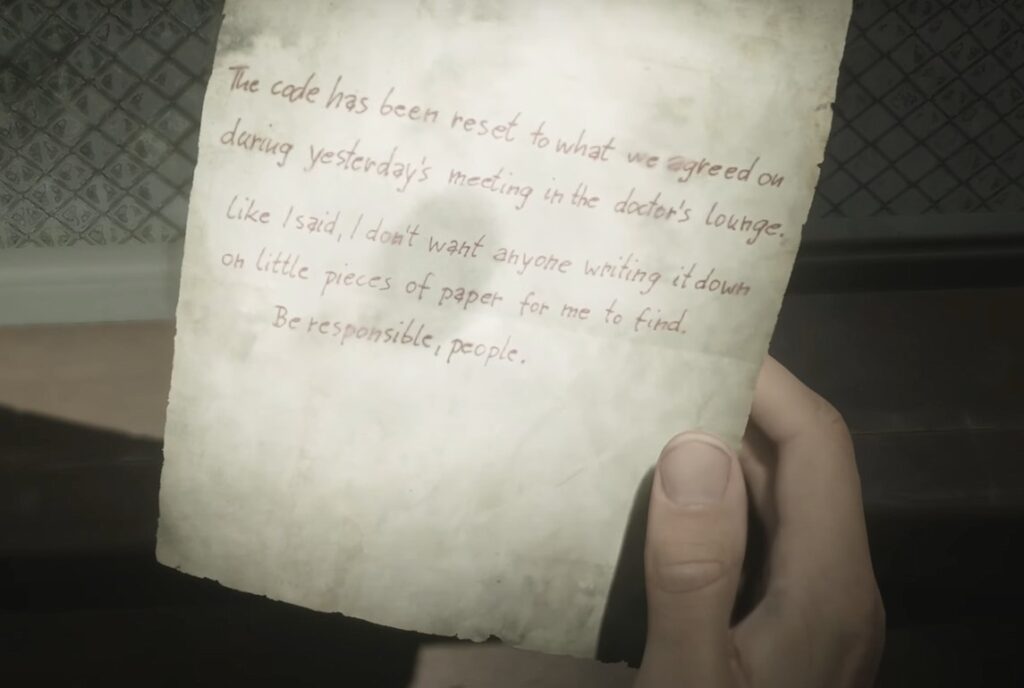 The code has been reset to what we agreed on
during yesterday's meeting in the doctor's lounge.
Like I said, I don't want anyone writing it down
on little pieces of paper for me to find.
Be responsible, people.